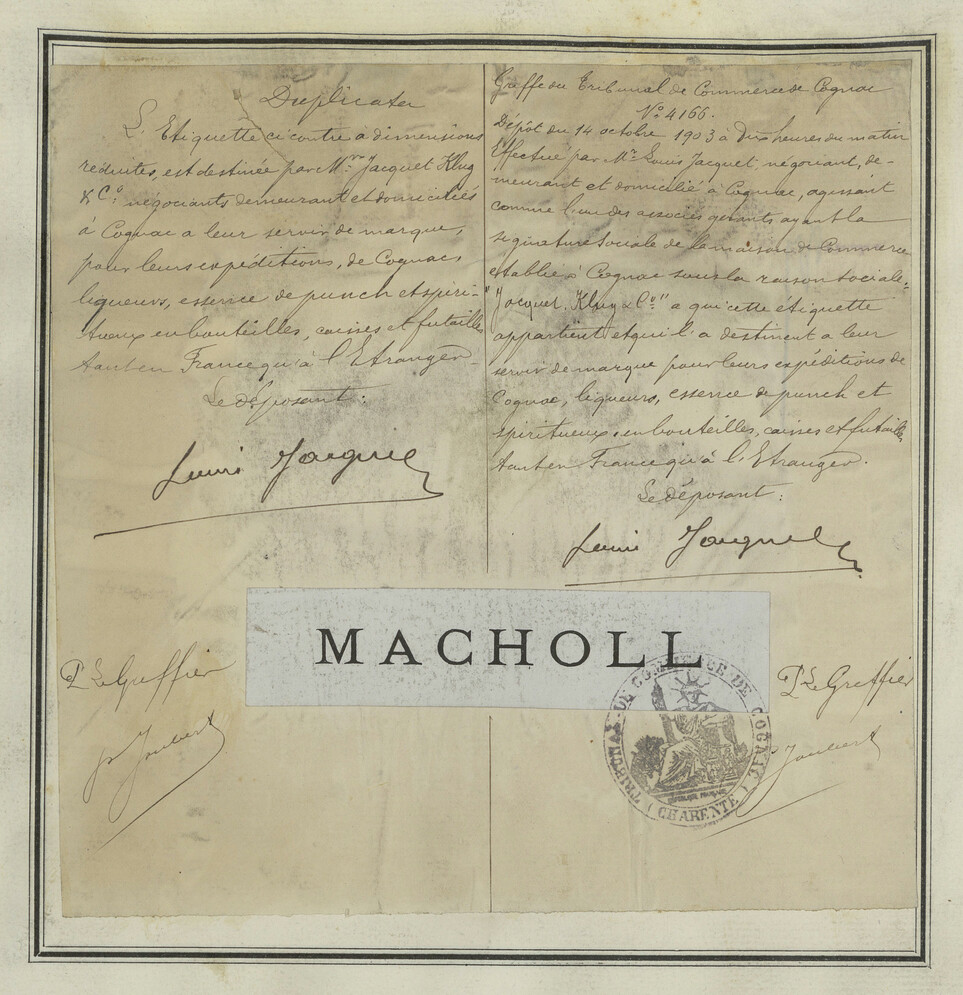 Duplicata
L'Etiquette ci contre à dimensions
réduites, est destinée par Mrs Jacquet Klug
& Co. négociants demeurant et domiciliés
à Cognac a leur servir de marque,
pour leurs expéditions, de Cognac,
liqueurs, essence de punch et spiri-
tueux en bouteilles, caisses et futailles
tant en France qu'à l'Etranger
Le déposant:
Louis Jacquet
Pr Le Greffier
Joubert
Greffe du Tribunal de Commerce de Cognac
No 4166.
Dépôt du 14 octobre 1903 à dix heures du matin
Effectué par Mr Louis Jacquet, négociant, de-
meurant et domicilié à Cognac, agissant
comme l'un des associés gérants ayant la
signature sociale de la maison de Commerce
établie à Cognac sous la raison sociale
"Jacquet, Klug & Co" a qui cette étiquette
appartient et qui l'a destinent a leur
servir de marque pour leurs expéditions de
Cognac, liqueurs, essence de punch et
spiritueux, en bouteilles, caisses et futailles
tant en France qu'à l'Etranger.
Le déposant:
Louis Jacquet
MACHOLL
Pr Le Greffier
Joubert
TRIBUNAL DE COMMERCE DE COGNAC
(CHARENTE)